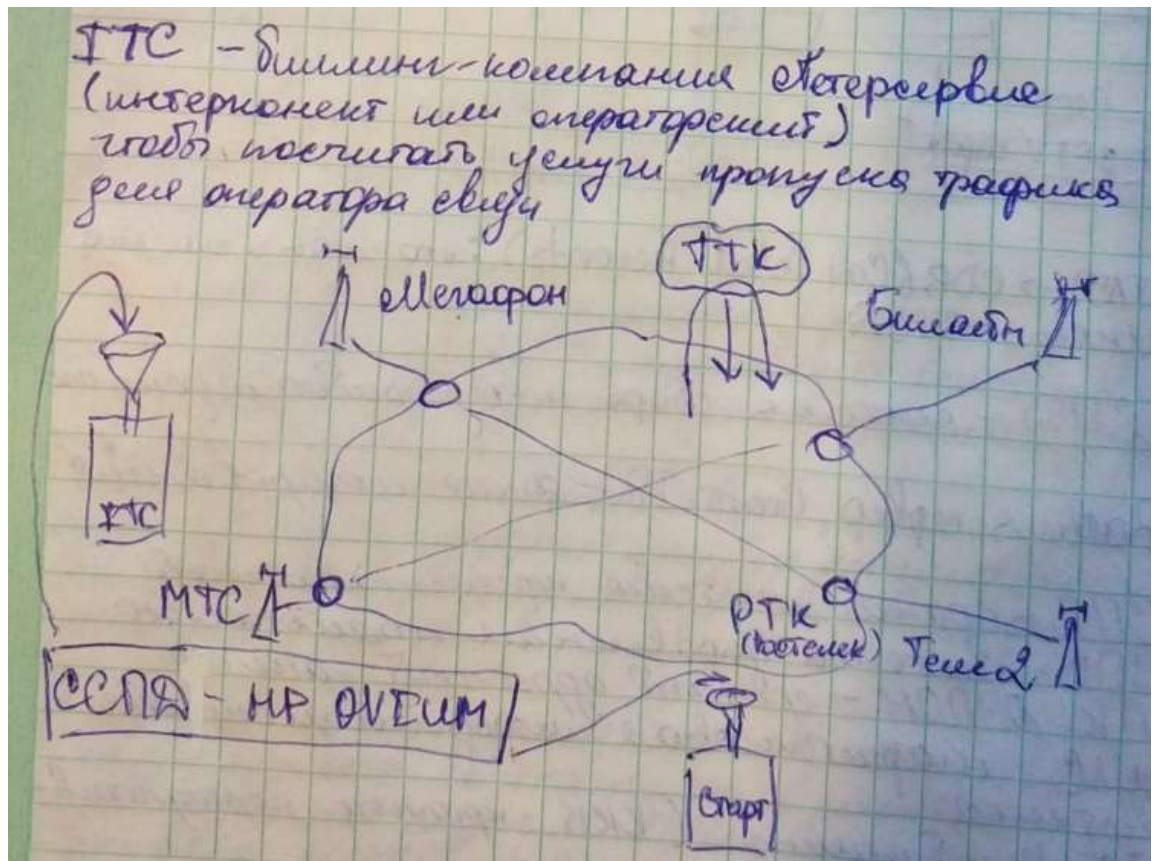 ITC - биллинг-компания Петерсервис
(интерконект или операторский)
чтобы посчитать услуги пропуска трафика
для оператора связи
ТТК
Мегафон
Билайн
ITC
МТС
РТК
(Ростелек)
Теле2
ССПД - HP OVEUM
Старт